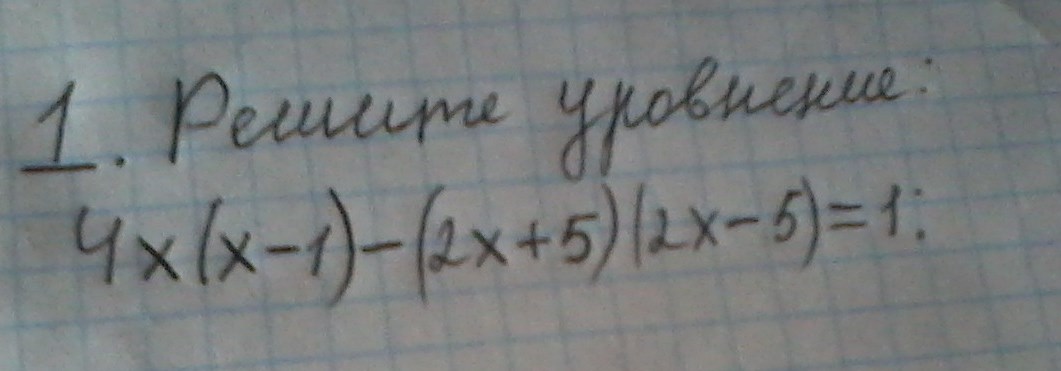 1. Решите уровнение:
4x(x-1)-(2x+5)(2x-5)=1;